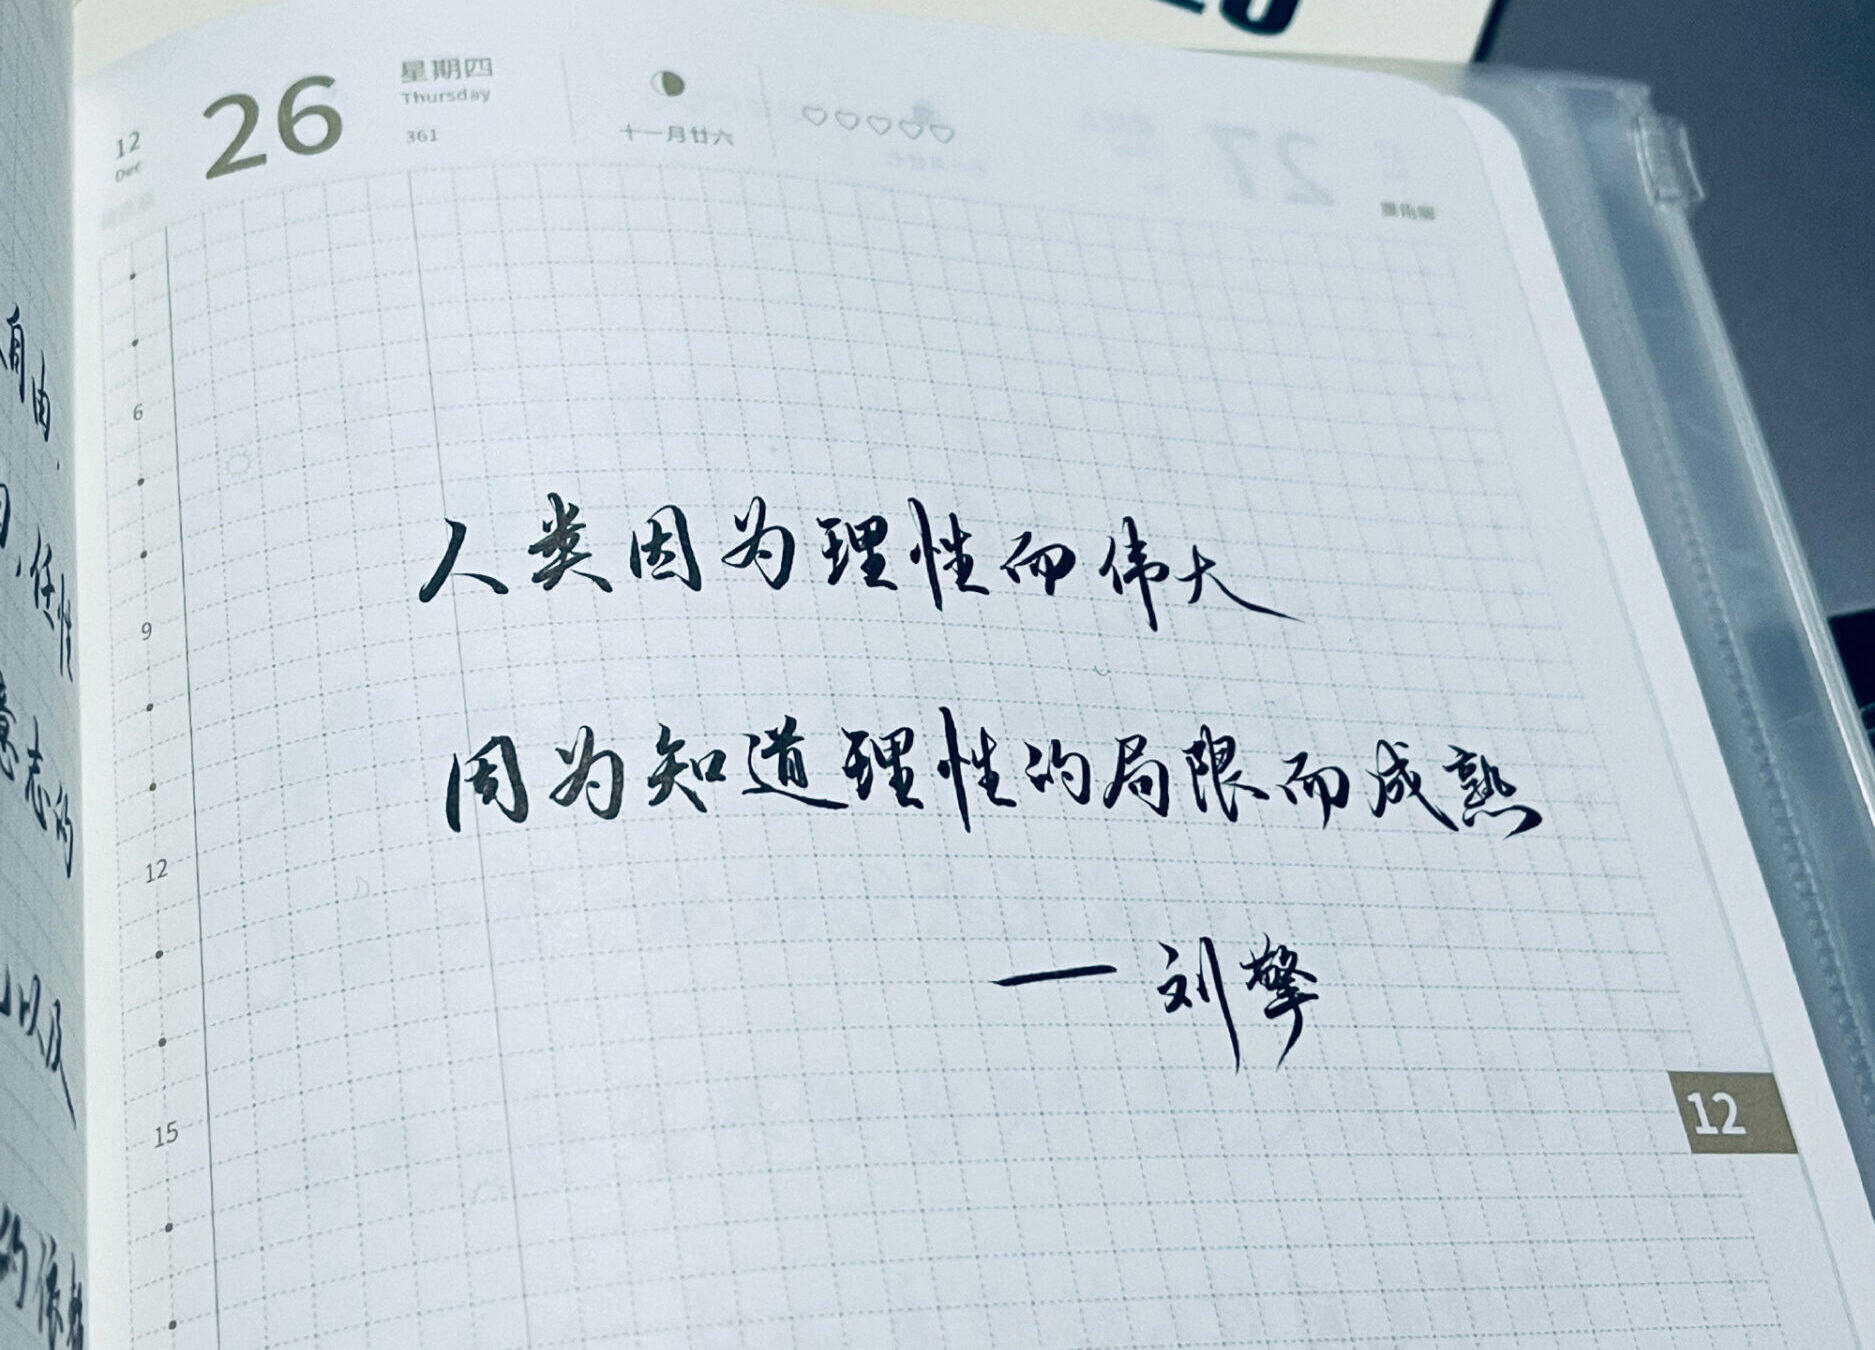 12
Dec
26
星期四
Thursday
361
十一月廿六
6
9
12
15
人类因为理性而伟大
因为知道理性的局限而成熟
— 刘擎
12
自由.
任性
意志的
以及
的依赖